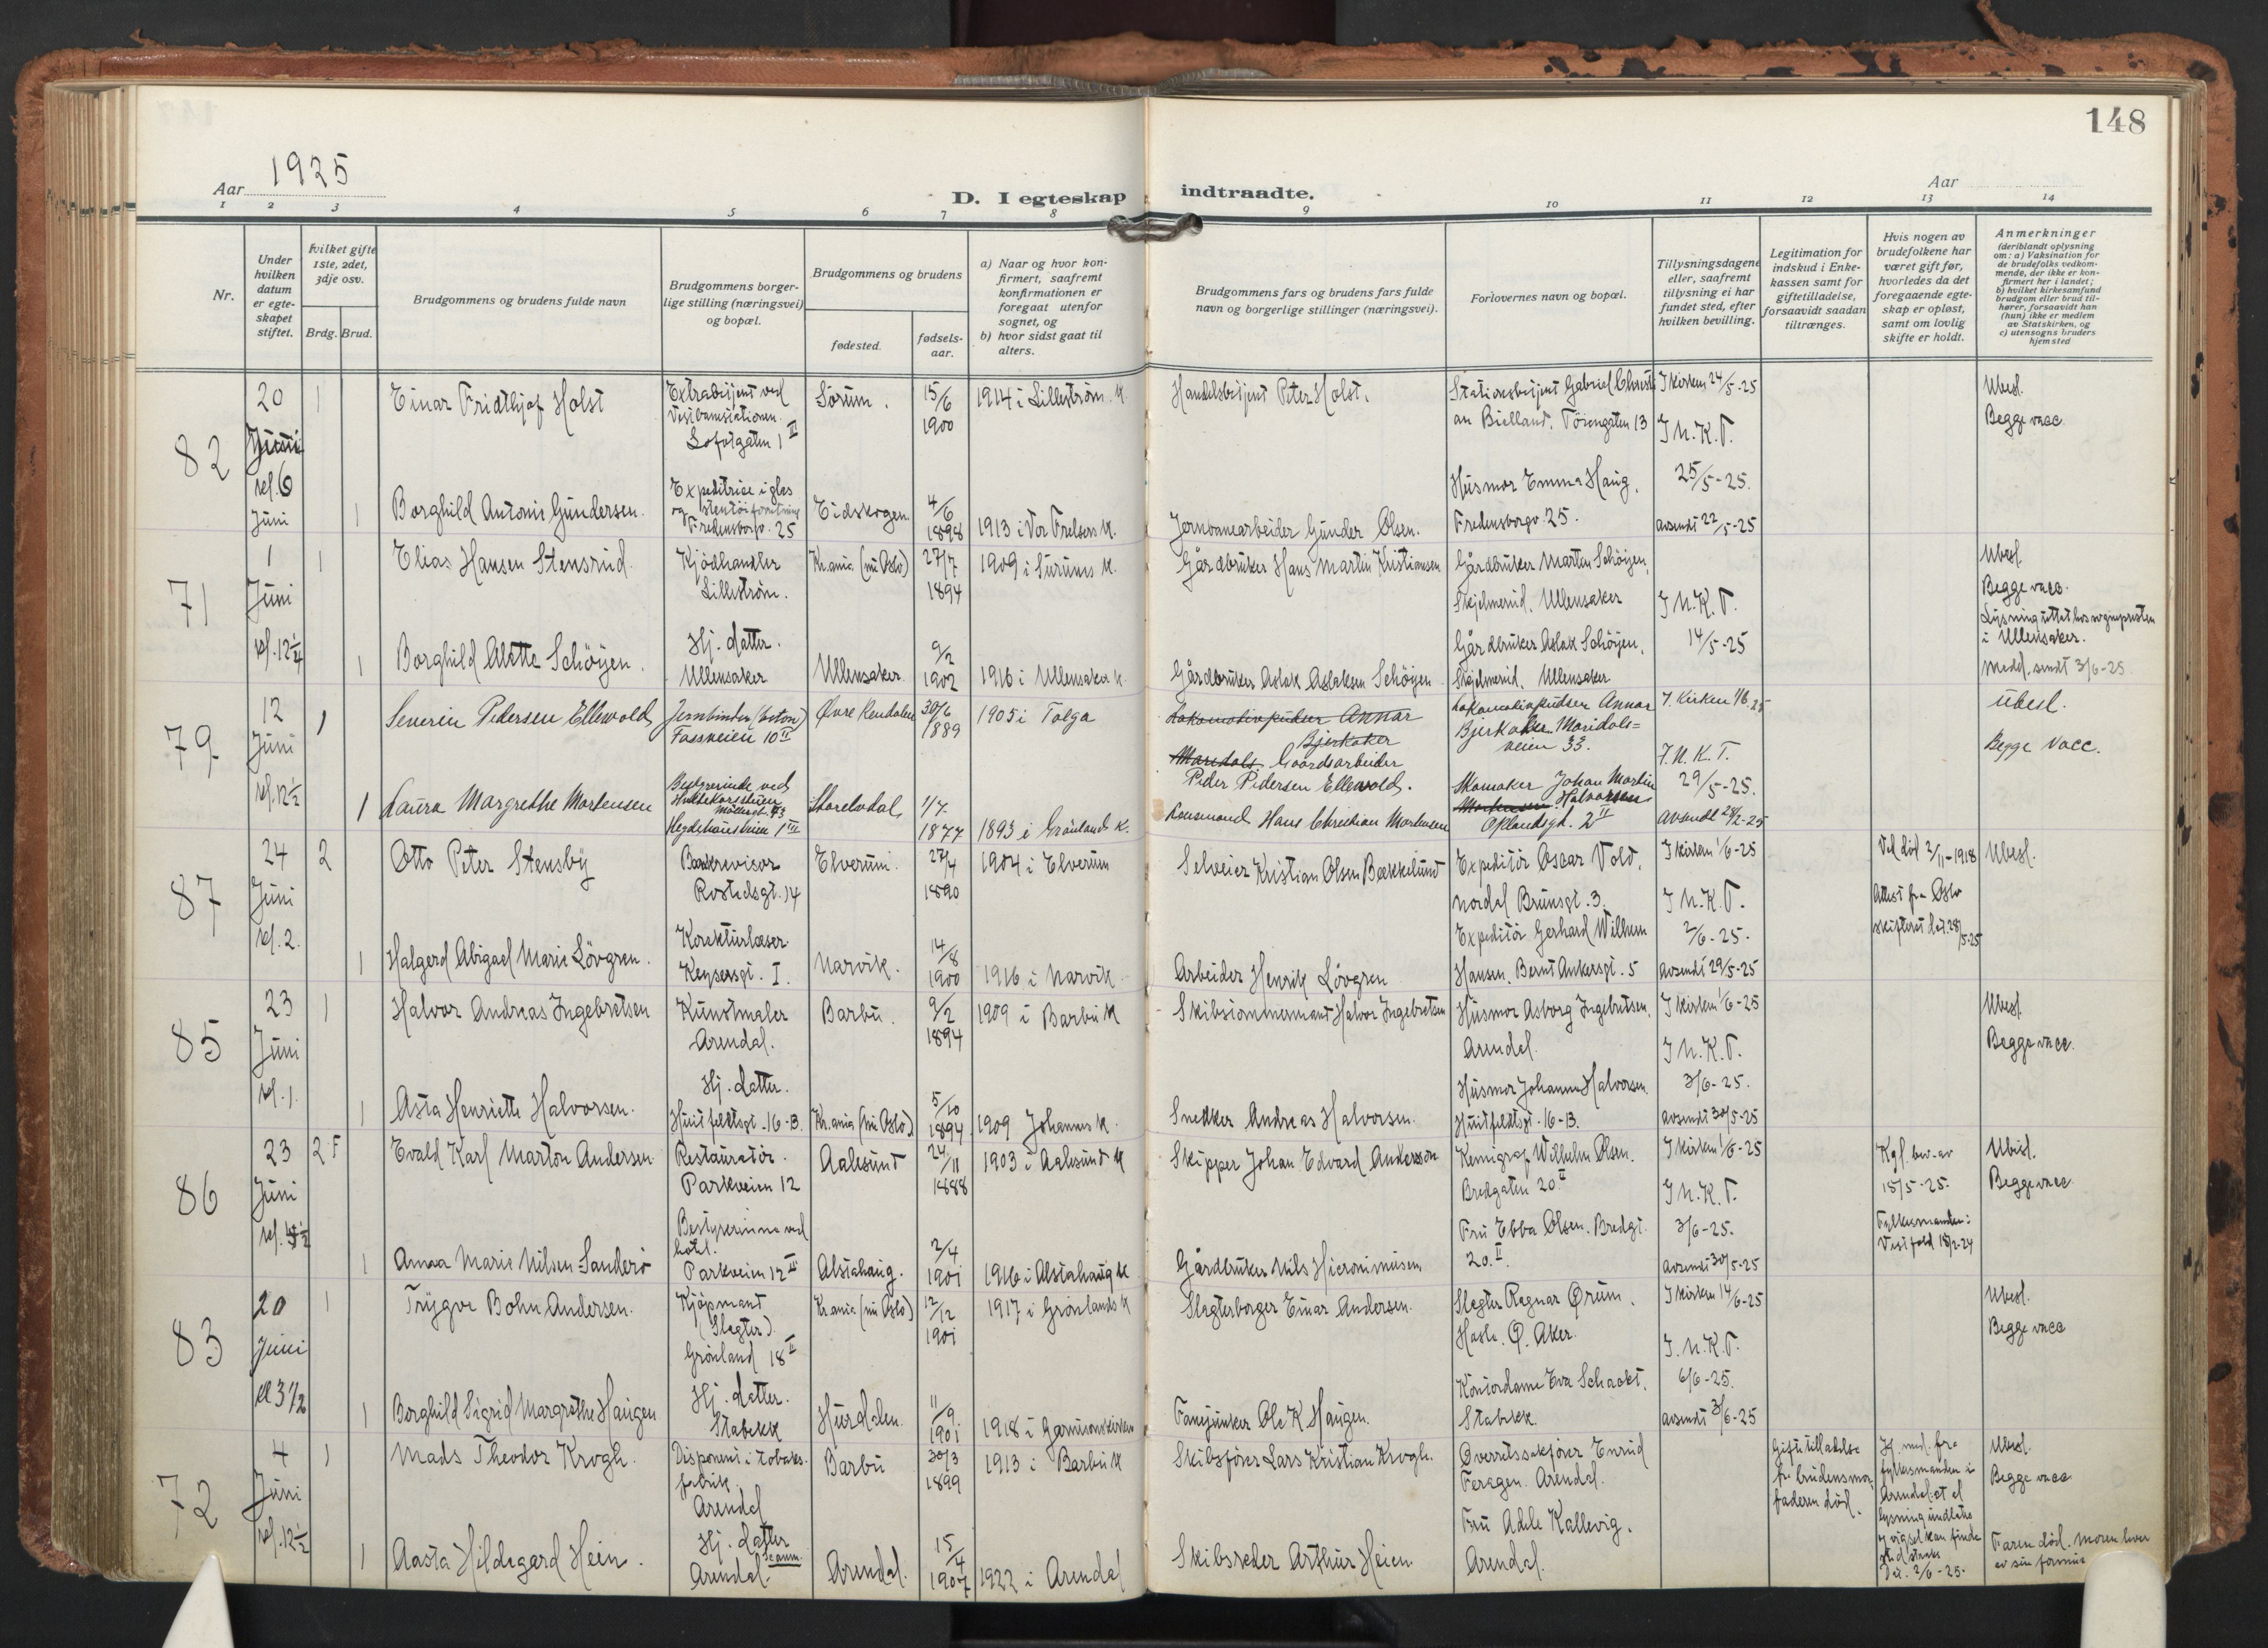 148
Aar 1925
D. I egteskap indtraadte.
Aar
1 2 3 4 5 6 7 8 9 10 11 12 13 14
Nr.
Under hvilken datum er egteskapet stiftet.
Hvilket gifte 1ste, 2det, 3dje osv.
Brdg. Brud.
Brudgommens og brudens fulde navn
Brudgommens borgerlige stilling (næringsvei) og bopæl.
Brudgommens og brudens
fødested.
fødselsaar.
a) Naar og hvor konfirmert, saafremt konfirmationen er foregaat utenfor sognet, og
b) hvor sidst gaat til alters.
Brudgommens fars og brudens fars fulde navn og borgerlige stillinger (næringsvei).
Forlovernes navn og bopæl.
Tillysningsdagene eller, saafremt tillysning ei har fundet sted, efter hvilken bevilling.
Legitimation for indskud i Enkekassen samt for giftetilladelse, forsaavidt saadan tiltrænges.
Hvis nogen av brudefolkene har været gift før, hvorledes da det foregaaende egteskap er opløst, samt om lovlig skifte er holdt.
Anmerkninger
(deriblandt oplysning om: a) Vaksination for de brudefolks vedkommende, der ikke er konfirmert her i landet;
b) hvilket kirkesamfund brudgom eller brud tilhører, forsaavidt han (hun) ikke er medlem av Statskirken, og
c) utensogns bruders hjemsted
82
20 Juni kl. 6 Juni
1 Einar Fridthjof Holst
Extrabetjent ved Vestbanestationen. Sofolgaten 1 III
Sørum. 15/6 1900
1914 i Lillestrøm K.
Handelsbetjent Peter Holst.
Stationsbetjent Gabriel Christian Bielland. Töiengaten 13
I kirken 24/5-25
I N.K.T. 25/5-25.
avsendt 22/5-25
Ubesl.
Begge vacc.
1 Borghild Antonie Gundersen.
Expeditrice i glas og stentöiforretning Fredensborgv. 25
Eidskogen. 4/6 1898
1913 i Vor Frelsers K.
Jernbanearbeider Gunder Olsen.
Husmor Emma Haug, Fredensborgv. 25.
71
1 Juni kl. 12 1/4
1 Elias Hansen Stensrud.
Kjødhandler Lilleström.
Kr.ania (nu Oslo) 27/7 1894
1909 i Sørums K.
Gårdbruker Hans Martin Kristiansen
Gårdbruker Marten Schöyen, Skjelmerud, Ullensaker
I N.K.T. 14/5-25
Ubesl.
Begge vacc.
Lysning uttat hos sogneprsten i Ullensaker.
Medd. sendt 3/6-25.
1 Borghild Alette Schöyen.
Hj. datter. Ullensaker
Ullensaker. 9/2 1902
1916 i Ullensaker K.
Gårdbruker Aslak Aslaksen Schöyen
Gårdbruker Aslak Schöyen, Skjelmerud, Ullensaker
79
12 Juni kl. 12 1/2
1 Severin Pedersen Ellewold,
Jernbinder (beton) Fossveien 10 II
Øvre Rendalen 30/6 1889
1905 i Tolga
Lokomotivpudser Annar Bjerkaker
Maridals Gaardsarbeider
Peder Pedersen Ellewold.
Lokomotivpudser Annar Bjerkaker Maridals= veien 33.
I. Kirken 1/6-25
I. N. K. T. 29/5-25.
avsendt
Ubesl.
Begge vacc.
1 Laura Margrethe Mortensen
Bestyrerinde ved
Møllergt. 43
Heydehausveien 1 III
Storelvdal, 1/7. 1877
1893 i Grönland K.
Lensmand Hans Christian Mortensen
Skomaker Johan Martin Mortensen Halvorsen Oplandsgt. 2 II
87
24 Juni kl. 2.
2 Otto Peter Stensby
Bankrevisor Rostedsgt. 14
Elverum. 27/4 1890
1904 i Elverum
Selveier Kristian Olsen Bækkelund
Expeditör Oscar Vold, Nordal Brunsgt. 3.
I kirken 1/6-25
I N.K.T. 2/6-25.
avsendt 29/5-25
Ved död 2/11-1918
Attest fra Oslo skifteret dat. 28/5-25
Ubesl.
1 Halgerd Abigael Marie Lövgren.
Korekturlæser. Keysersgt. I.
Narvik. 14/8 1900
1916 i Narvik
Arbeider Henrik Lövgren
Expeditör Gerhard Wilhelm Hansen, Bernt Ankersgt. 5
85
23 Juni kl. 1.
1 Halvor Andreas Ingebretsen
Kunstmaler Arendal.
Barbu. 9/2 1894
1909 i Barbu K
Skibstömmermand Halvor Ingebretsen
Husmor Asborg Ingebretsen, Arendal.
I kirken 1/6-25
I N.K.T. 3/6-25.
avsendt 30/5-25
Ubesl.
Begge vacc.
1 Asta Henriette Halvorsen.
Hj. datter. Huitfeldtsgt. 16-B.
Kr.ania (nu Oslo) 5/10 1894
1909 Johannes K.
Snedker Andreas Halvorsen.
Husmor Johanne Halvorsen. Huitfeldtsgt. 16-B.
86
23 Juni
2 F Evald Karl Marton Andersen.
Restauratör. Parkveien 12
Aalesund 24/11 1888
1903 i Aalesund K
Skipper Johan Edvard Anderson
Kemigraf Wilhelm Olsen. Bredgaten 20. II
I kirken 1/6-25
I N.K.T. 3/6-25.
avsendt 30/5-25
Kgl. bev. av 15/5-25.
Fylkesmanden i Vestfold 18/2-24
Ubesl.
Begge vacc.
1 Anna Marie Nilsen Sanderö
Bestyrerinne ved hotel. Parkveien 12 III
Alstahaug. 2/4 1901
1916 i Alstahaug K
Gårdbruker Nils Hieronimusen
Fru Ebba Olsen. Bredgt. 20. II
83
20 Juni kl 3 1/2
1 Trygve Bohn Andersen.
Kjöpmand (Slegter). Grönland 18 II
Kr.ania (nu Oslo) 12/12 1901
1917 i Grönlands K
Slagterborger Einar Andersen.
Slegter Ragnar Ørum, Hasle. Ø. Aker.
I kirken 14/6-25
I. N.K.T. 6/6-25.
avsendt 3/6-25
Ubesl.
Begge vacc
1 Borghild Sigrid Margrethe Haugen
Hj. datter. Stabekk
Hurdalen. 11/9 1901
1918 i Garnisonskirken
Fanejunker Ole K. Haugen.
Kontordame Eva Schackt, Stabekk.
72
4 Juni kl. 12 1/2
1 Mads Theodor Krogh.
Disponent i tobaksfabrik. Arendal
Barbu 30/3 1899
1913 i Barbu K
Skibsförer Lars Kristian Krogh.
Overretssakförer Enrud Feragen. Arendal.
Giftetilladelse fra brudens mor, faderen död.
Jf. med. fra fylkesmanden i Arendal at
lysning undlates
vigsel kan finde sted straks
Dat. 2/6-25.
Ubesl.
Begge vacc
1 Aasta Hildegard Hein.
Hj. datter Arendal.
Arendal. 15/4 1907
1922 i Arendal
Skibsreder Arthur Heien
Fru Adele Kallevig. Arendal.
Faren död. Moren lever av sin formue